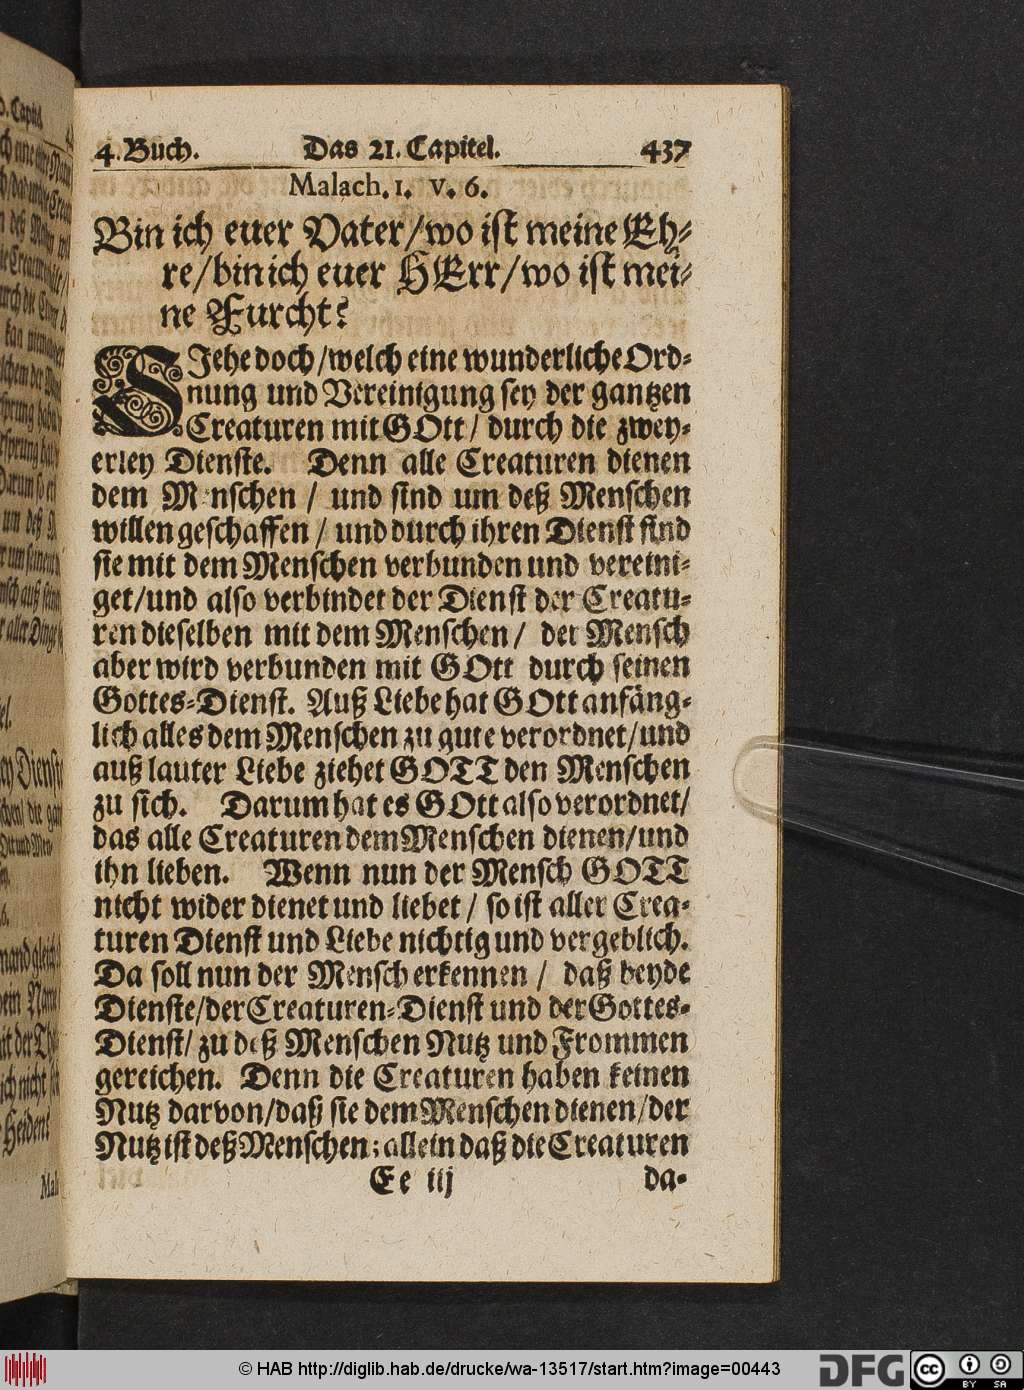 4. Buch. Das 21. Capitel. 437
Malach. 1. v. 6.
Bin ich euer Vater/wo ist meine Eh⸗
re/bin ich euer HErr/wo ist mei⸗
ne Furcht?
SJehe doch/welch eine wunderliche Ord⸗
nung und Vereinigung sey der gantzen
Creaturen mit GOtt/ durch die zwey⸗
erley Dienste. Denn alle Creaturen dienen
dem M nschen / und sind um deß Menschen
willen geschaffen / und durch ihren Dienst sind
sie mit dem Menschen verbunden und vereini⸗
get/und also verbindet der Dienst der Creatu⸗
ren dieselben mit dem Menschen/ der Mensch
aber wird verbunden mit GOtt durch seinen
Gottes⸗Dienst. Auß Liebe hat GOtt anfäng⸗
lich alles dem Menschen zu gute verordnet/und
auß lauter Liebe ziehet GOTT den Menschen
zu sich. Darum hat es GOtt also verordnet/
das alle Creaturen dem Menschen dienen/und
ihn lieben. Wenn nun der Mensch GOTT
nicht wider dienet und liebet / so ist aller Crea⸗
turen Dienst und Liebe nichtig und vergeblich.
Da soll nun der Mensch erkennen / daß beyde
Dienste/der Creaturen⸗Dienst und der Gottes⸗
Dienst/ zu deß Menschen Nutz und Frommen
gereichen. Denn die Creaturen haben keinen
Nutz darvon/daß sie dem Menschen dienen/der
Nutz ist deß Menschen; allein daß die Creaturen
Ee iij da⸗
© HAB http://diglib.hab.de/drucke/wa-13517/start.htm?image=00443
DFG cc BY SA